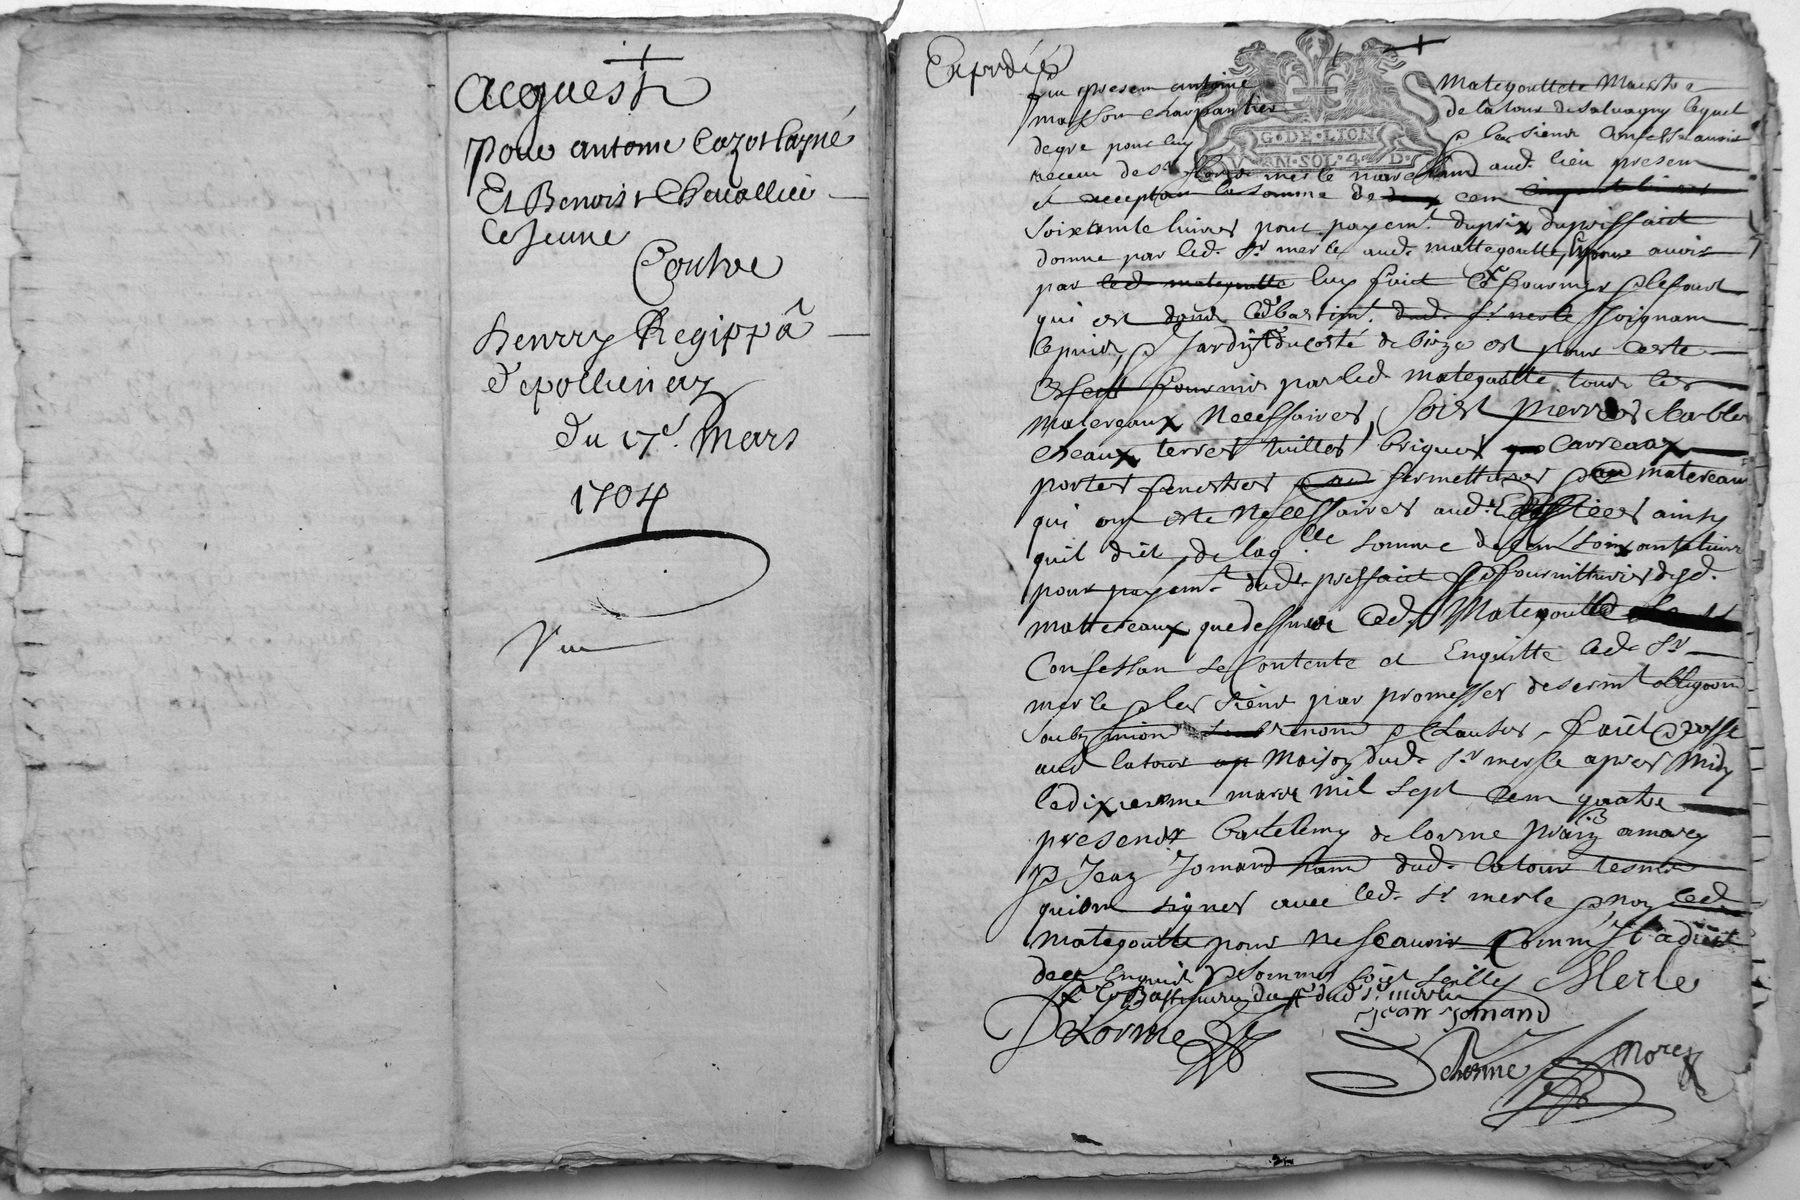 acquest
pour antoine Cazot layné
Et Benoist Chevallier
le Jeune
Contre
henrry Regippâ
d'epollienay
du 17e. mars
1704
Vu
Expediés
Fut present antoine Mategoutte Maistre
masson charpantier de latour de salvagny lequel
de gre pour luy & les siens Confesse avoir
receu de sr. merle marchand aud. lieu present
et acceptant la somme de cent
soixante livres pour payemt. du prix du prisfaict
donne par led. sr. merle aud. mattegoutte, pour avoir
par led mategoutte luy faict & fournir le four
qui est dans led bastimt. dud. sr. merle joignant
le puis & Jardin du costé de bize et pour cest
fournir par led mategoutte tous les
matereaux Necessaires, soist pierres sables
cheaux terres tuilles briques carreaux
portes fenestres fermettures & matereaux
qui ont este Necessaires aud. ainsy
quil dict, de laqlle. somme de cent soixante livres
pour payemt. dud. prisfaict & fournitures desd.
mattereaux que dessus led. Mategoutte
Confessant se Contente et Enquitte led. sr.
merle & les siens par promesses desermt obligaon
soubzmiond renond & Clauses, faict & passé
aud latour Maison dud. sr merle apres Midy
le dixiesme mars mil sept Cent quatre
presents bartelemy de lorme pratn amorez
& Jean Jomard dud. latour tesms
qui ont signes avec led. sr merle & noy led
mategoutte pour ne scavoir Comm' Il a dict
de ce Enquis & sommes soist scelle Merle
dud sr. merle
Delorme Jean Jomand
Delorme morez
G·DE·LION
MOYEN·SOL·4·D·